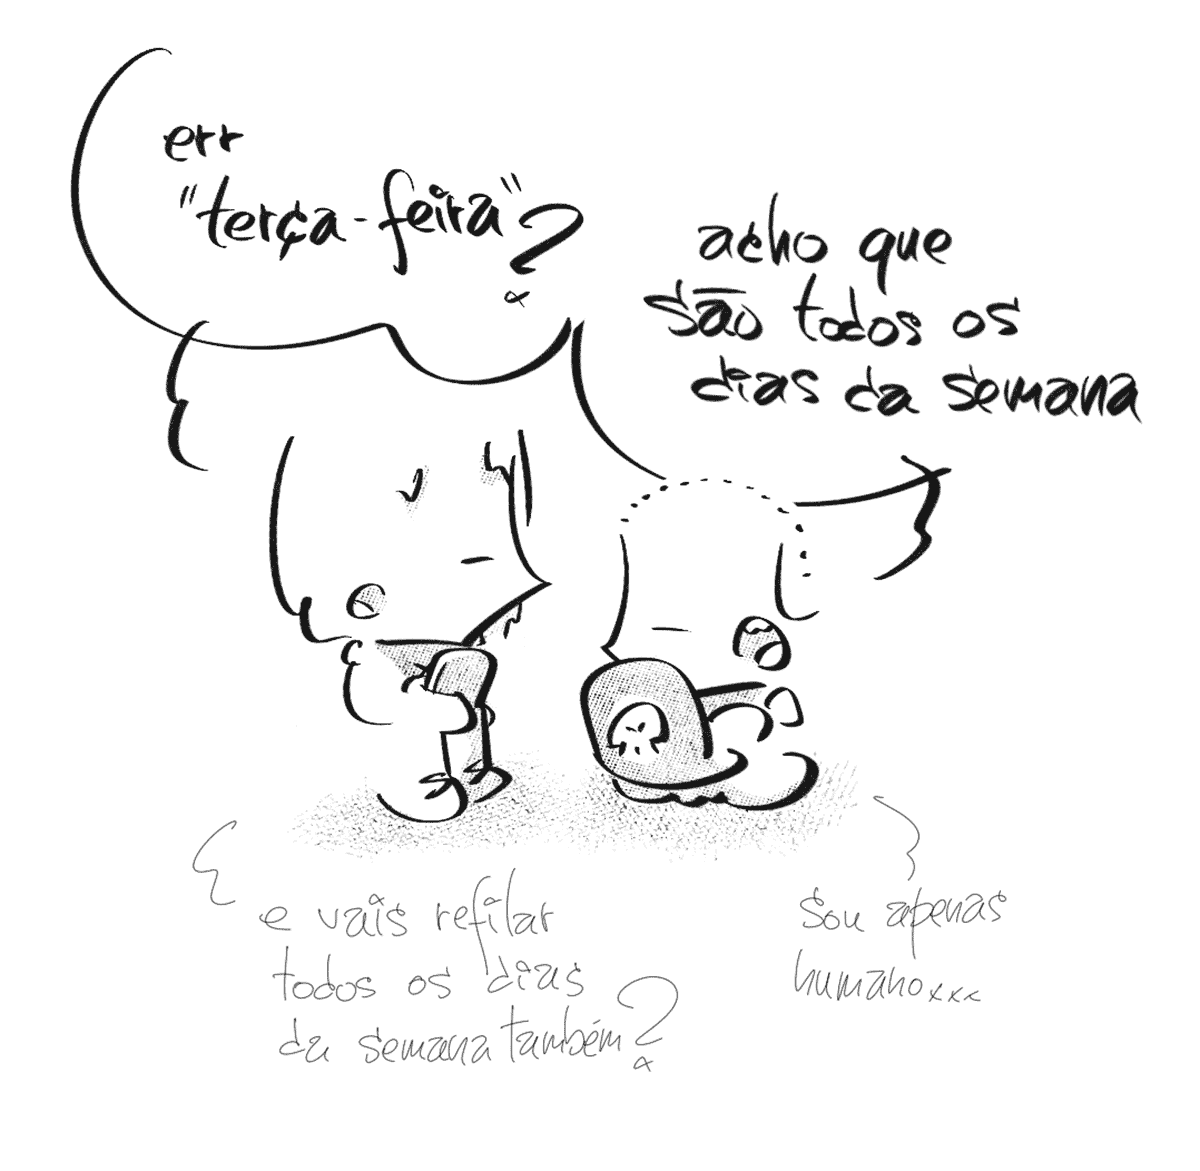 err
"terça-feira"?
acho que
são todos os
dias da semana
e vais refilar
todos os dias
da semana também?
sou apenas
humano...